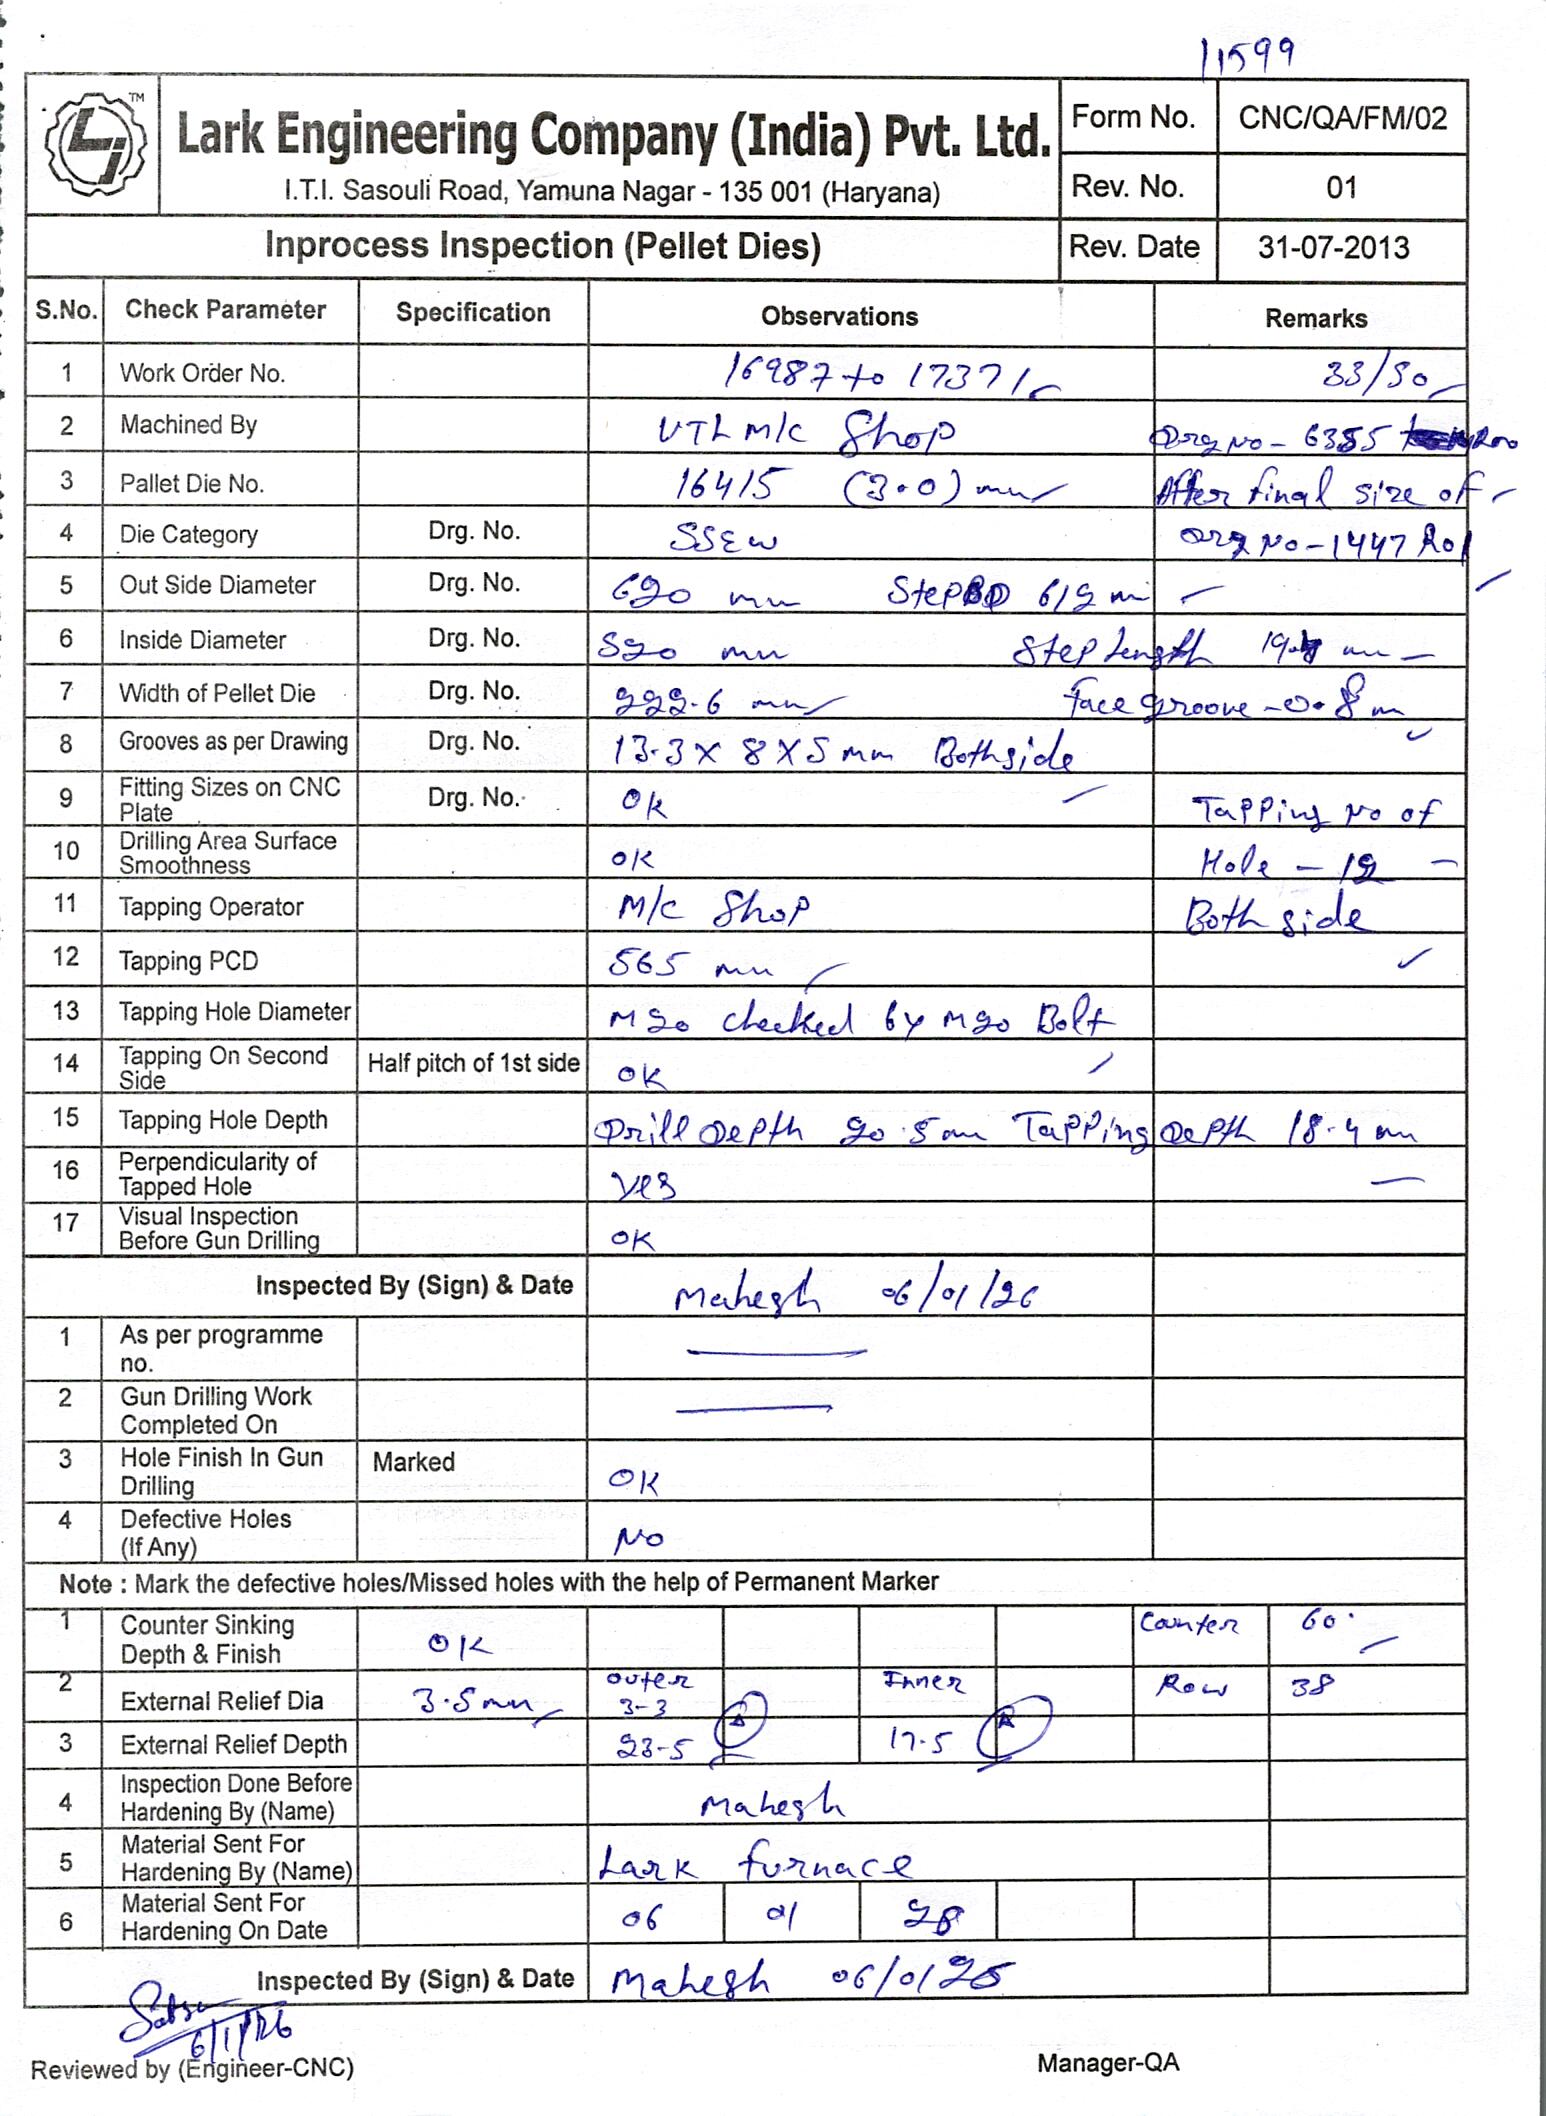 11599
TM
Lark Engineering Company (India) Pvt. Ltd.
I.T.I. Sasouli Road, Yamuna Nagar - 135 001 (Haryana)
Form No. CNC/QA/FM/02
Rev. No. 01
Inprocess Inspection (Pellet Dies) Rev. Date 31-07-2013
S.No. Check Parameter Specification Observations Remarks
1 Work Order No. 16987 to 17371 33/30
2 Machined By VTL M/C Shop Drg No - 6355
3 Pallet Die No. 16415 (3.0) mm After final size of
4 Die Category Drg. No. SSEW Drg No - 1447 R01
5 Out Side Diameter Drg. No. 620 mm Step OD 612 mm
6 Inside Diameter Drg. No. 520 mm Step Length mm
7 Width of Pellet Die Drg. No. 222.6 mm Face groove - 0.8 m
8 Grooves as per Drawing Drg. No. 13.3 X 8 X 5 mm Bothside
9 Fitting Sizes on CNC Plate Drg. No. OK Tapping No of
10 Drilling Area Surface Smoothness OK Hole - 12
11 Tapping Operator M/C Shop Both side
12 Tapping PCD 565 mm
13 Tapping Hole Diameter M20 checked by M20 Bolt
14 Tapping On Second Side Half pitch of 1st side OK
15 Tapping Hole Depth Drill Depth 20.5 mm Tapping Depth 18.4 mm
16 Perpendicularity of Tapped Hole Yes
17 Visual Inspection Before Gun Drilling OK
Inspected By (Sign) & Date Mahesh 06/01/26
1 As per programme no.
2 Gun Drilling Work Completed On
3 Hole Finish In Gun Drilling Marked OK
4 Defective Holes (If Any) No
Note : Mark the defective holes/Missed holes with the help of Permanent Marker
1 Counter Sinking Depth & Finish OK Counter 60°
2 External Relief Dia 3.5 mm Outer 3-3 Inner Row 38
3 External Relief Depth 23-5 17.5
4 Inspection Done Before Hardening By (Name) Mahesh
5 Material Sent For Hardening By (Name) Lark furnace
6 Material Sent For Hardening On Date 06 01
Inspected By (Sign) & Date Mahesh 06/01/26
6/1/26
Reviewed by (Engineer-CNC) Manager-QA